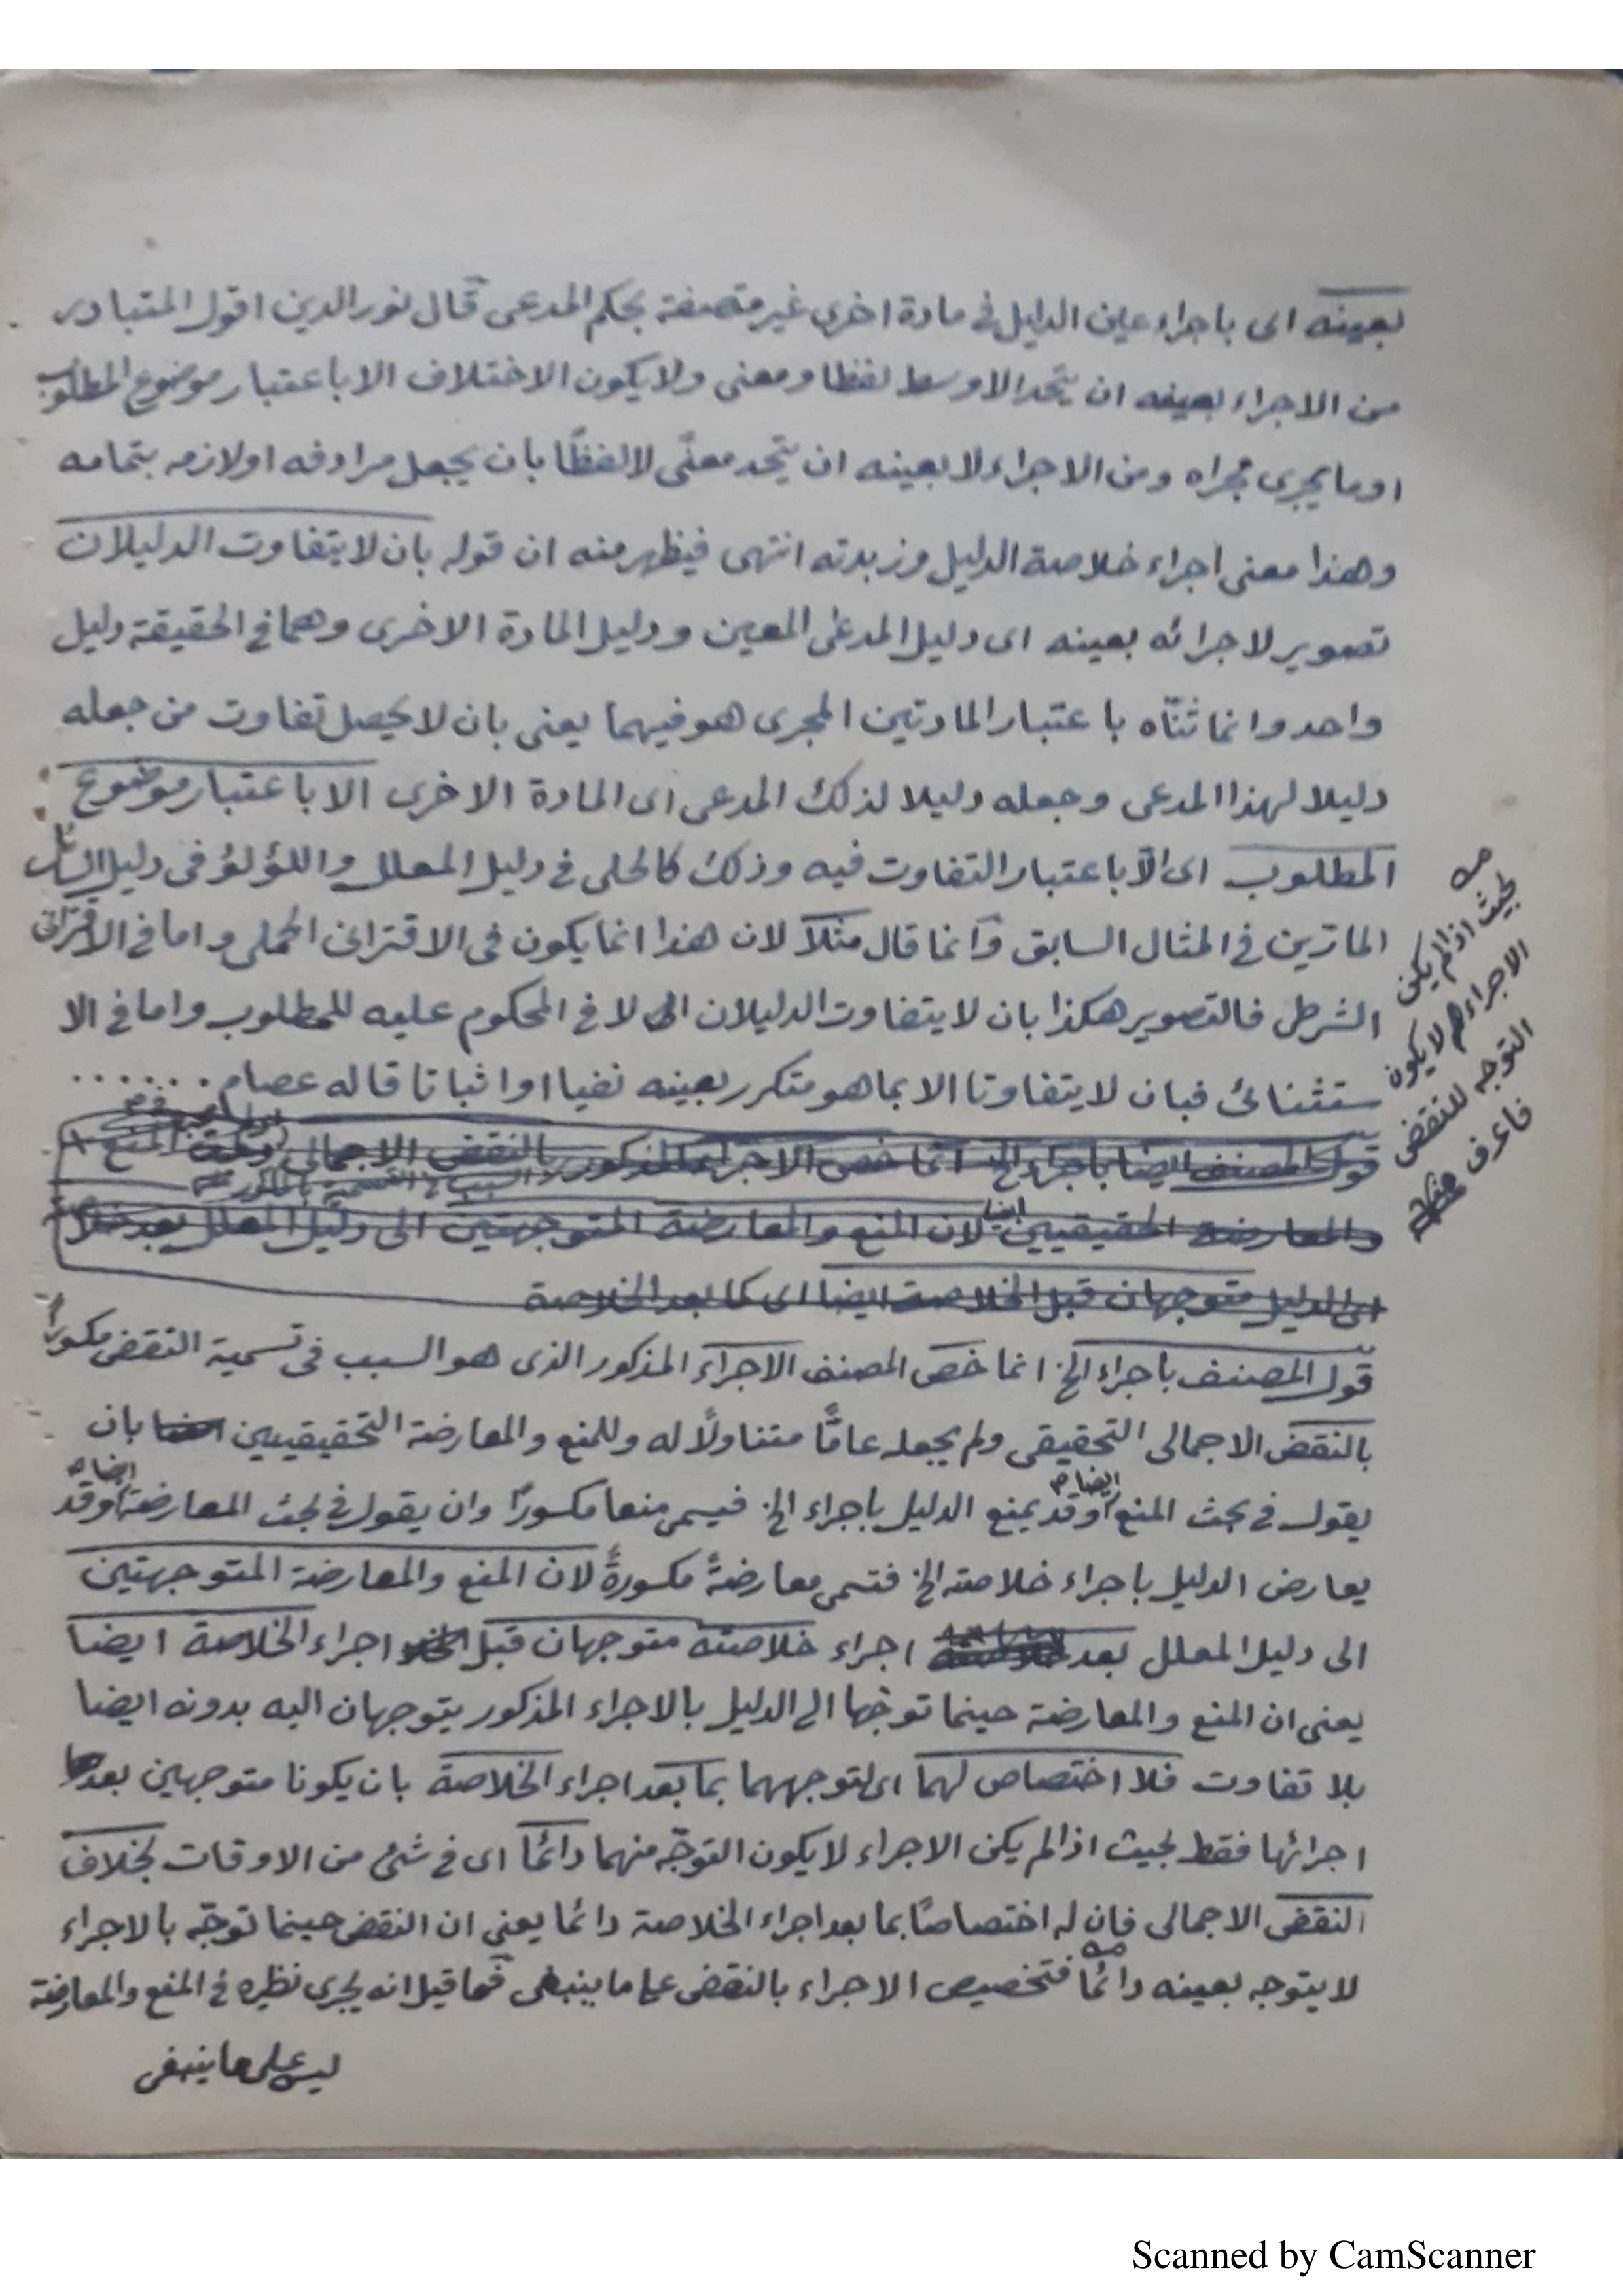 بعينه اى باجراء عين الدليل فى مادة اخرى غير متصفة بحكم المدعى قال نور الدين اقول المتبادر
من الاجراء بعينه ان يتحد الاوسط لفظا ومعنى ولا يكون الاختلاف الا باعتبار موضوع المطلوب
او ما يجرى مجراه ومن الاجراء لا بعينه ان يتحد معنًى لا لفظًا بان يجعل مرادفه او لازمه بتمامه
وهذا معنى اجراء خلاصة الدليل وزبدته انتهى فيظهر منه ان قوله بان لا يتفاوت الدليلان
تصوير لاجرائه بعينه اى دليل المدعى المعين ودليل المادة الاخرى وهما فى الحقيقة دليل
واحد وانما ثنّاه باعتبار المادتين المجرى هو فيهما يعنى بان لا يحصل تفاوت من جعله
دليلا لهذا المدعى وجعله دليلا لذلك المدعى اى المادة الاخرى الا باعتبار موضوع
المطلوب اى الّا باعتبار التفاوت فيه وذلك كالحلى فى دليل المعلل واللؤلؤ فى دليل السائل
المارّين فى المثال السابق وانما قال مثلا لان هذا انما يكون فى الاقترانى الحملى واما فى الاقترانى
الشرطى فالتصوير هكذا بان لا يتفاوت الدليلان الا فى المحكوم عليه للمطلوب واما فى الا
ستثنائى فبان لا يتفاوتا الا بما هو متكرر بعينه نفيا او اثباتا قاله عصام ......
قول المصنف ايضا باجراء الخ انما خص الاجراء المذكور بالنقض الاجمالى المنع
والمعارضة الحقيقيين ايضا لان المنع والمعارضة المتوجهتين الى دليل المعلل بعد
الدليل متوجهان قبل الخلاصة ايضا اى كما بعد الخلاصة
قول المصنف باجراء الخ انما خص المصنف الاجراء المذكور الذى هو السبب فى تسمية النقض مكسورا
بالنقض الاجمالى التحقيقى ولم يجعله عامًّا متناولًا له وللمنع والمعارضة التحقيقيين بان
يقول فى بحث المنع ايضا وقد يمنع الدليل باجراء الخ فيسمى منعا مكسورًا وان يقول فى بحث المعارضة ايضا وقد
يعارض الدليل باجراء خلاصته الخ فتسمى معارضةً مكسورةً لان المنع والمعارضة المتوجهتين
الى دليل المعلل بعد اجراء خلاصته متوجهان قبل اجراء الخلاصة ايضا
يعنى ان المنع والمعارضة حينما توجّها الى الدليل بالاجراء المذكور يتوجهان اليه بدونه ايضا
بلا تفاوت فلا اختصاص لهما اى لتوجههما بما بعد اجراء الخلاصة بان يكونا متوجهين بعد
اجرائها فقط بحيث اذا لم يكن الاجراء لا يكون التوجّه منهما دائمًا اى فى شئ من الاوقات بخلاف
النقض الاجمالى فان له اختصاصًا بما بعد اجراء الخلاصة دائما يعنى ان النقض حينما توجّه بالاجراء
لا يتوجه بعينه دائمًا فتخصيص الاجراء بالنقض على ما ينبغى فما قيل انه يجرى نظيره فى المنع والمعارضة
ليس على ما ينبغى
بحيث اذا لم يكن
الاجراء لا يكون
التوجه للنقض
فاعرف
Scanned by CamScanner